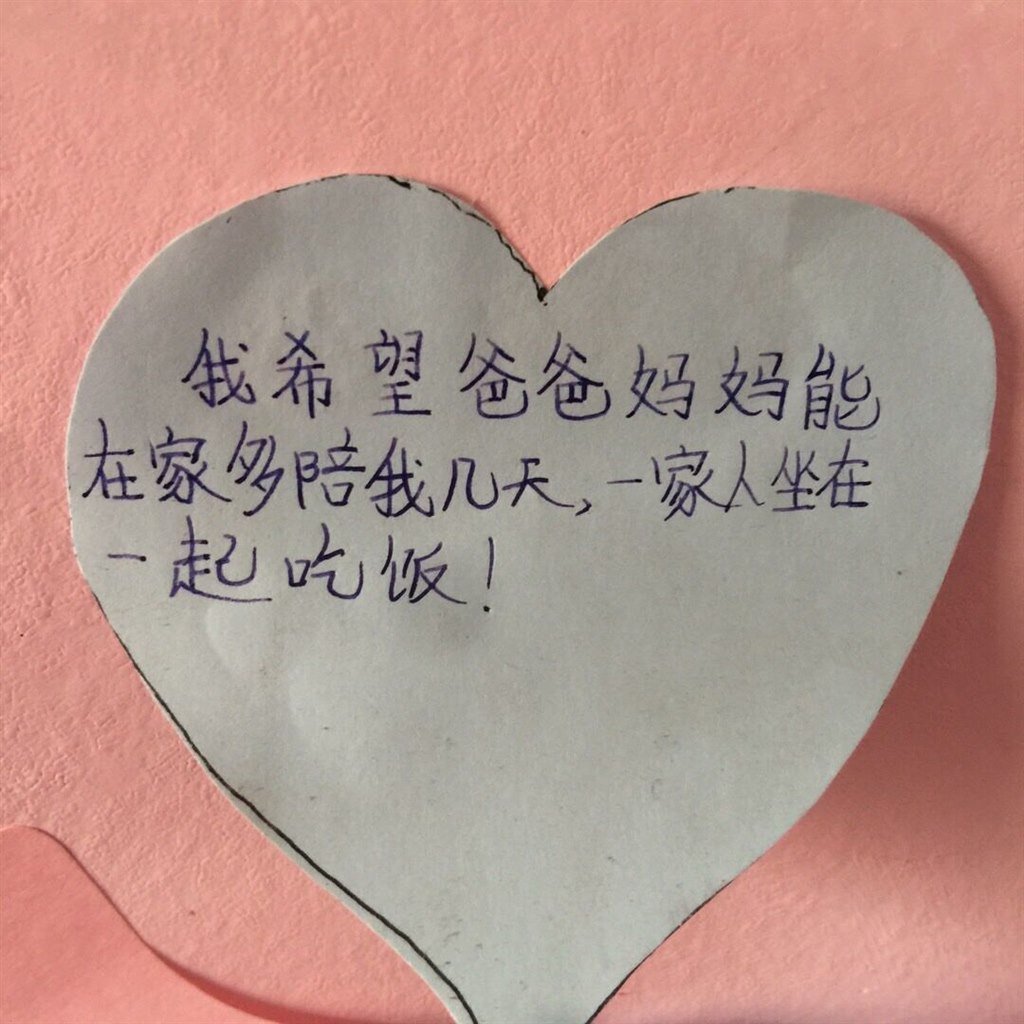 我希望爸爸妈妈能
在家多陪我几天,一家人坐在
一起吃饭!